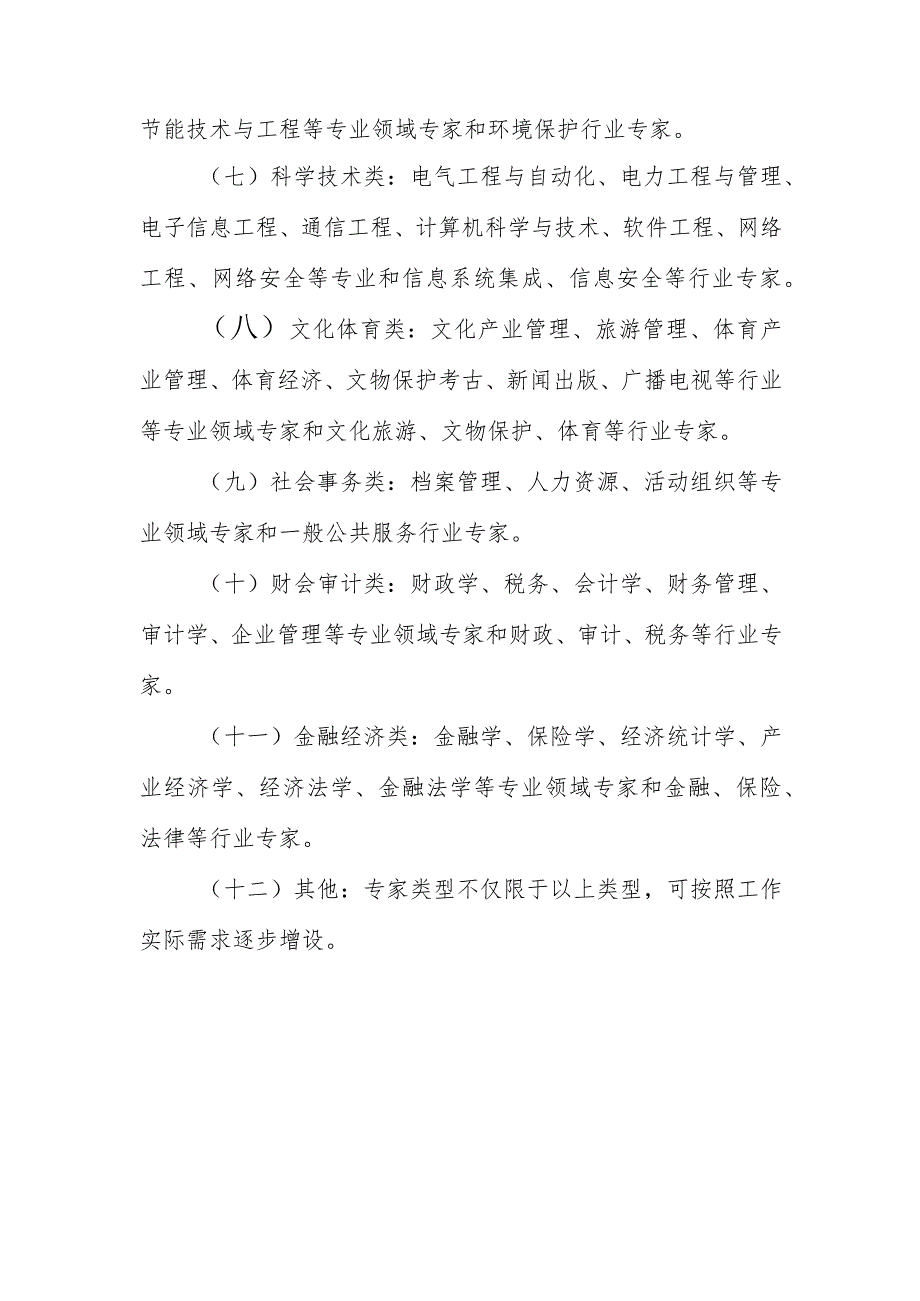 节能技术与工程等专业领域专家和环境保护行业专家。
（七）科学技术类：电气工程与自动化、电力工程与管理、
电子信息工程、通信工程、计算机科学与技术、软件工程、网络
工程、网络安全等专业和信息系统集成、信息安全等行业专家。
（八）文化体育类：文化产业管理、旅游管理、体育产
业管理、体育经济、文物保护考古、新闻出版、广播电视等行业
等专业领域专家和文化旅游、文物保护、体育等行业专家。
（九）社会事务类：档案管理、人力资源、活动组织等专
业领域专家和一般公共服务行业专家。
（十）财会审计类：财政学、税务、会计学、财务管理、
审计学、企业管理等专业领域专家和财政、审计、税务等行业专
家。
（十一）金融经济类：金融学、保险学、经济统计学、产
业经济学、经济法学、金融法学等专业领域专家和金融、保险、
法律等行业专家。
（十二）其他：专家类型不仅限于以上类型，可按照工作
实际需求逐步增设。